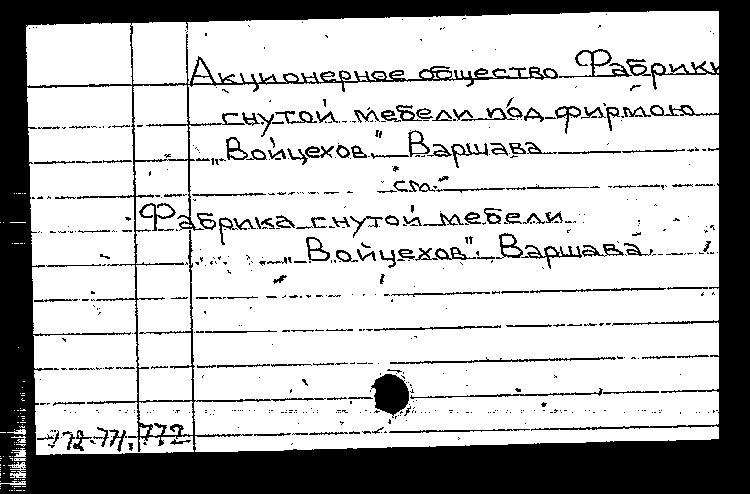 Акционерное общество Фабрики
гнутой мебели под фирмою
„Войцехов." Варшава
см.
Фабрика гнутой мебели
„Войцехов". Варшава.
772